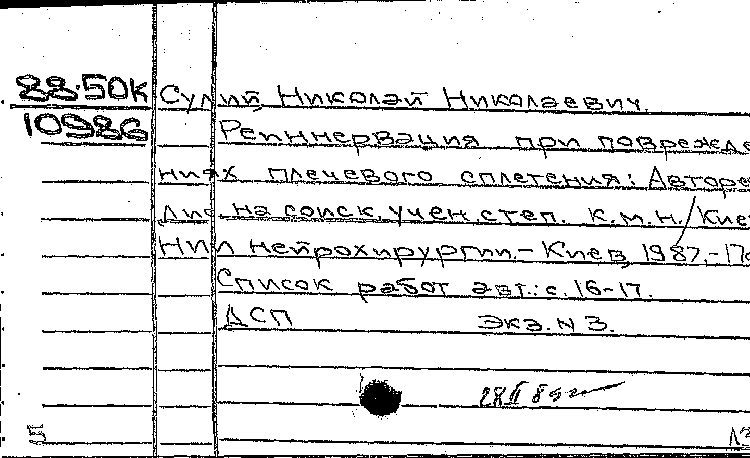 88.50К Сулий Николай Николаевич.
10986 Реиннервация при поврежде
ниях плечевого сплетения: Авторе
дис. на соиск. учен. степ. к.м.н./Кие
НИИ нейрохирургии.-Киев, 1987.-17с
Список работ авт.: с. 16-17.
ДСП Экз. N 3.
28 II 89г
5